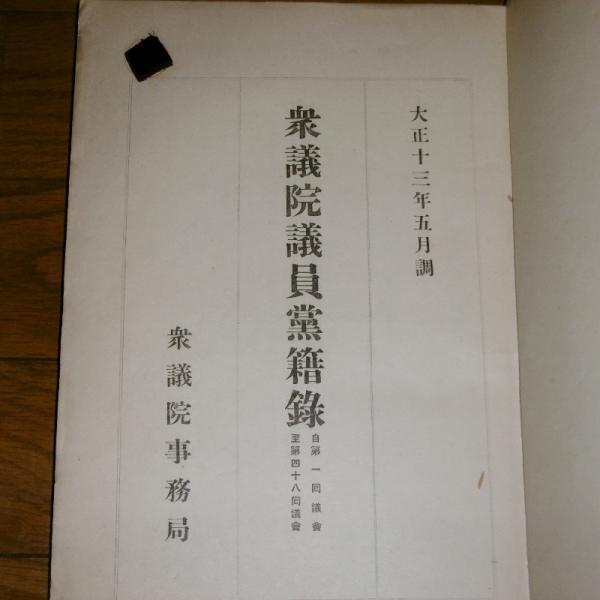 大正十三年五月調
衆議院議員黨籍錄
自第一回議會
至第四十八回議會
衆議院事務局